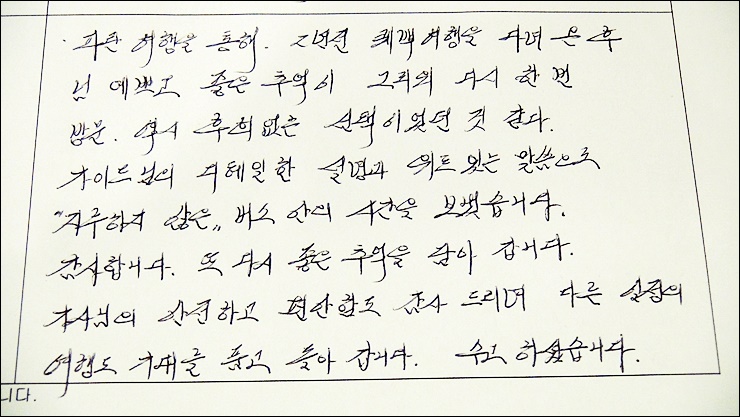 · 파란 여행을 통해. 2년전 퀘백여행을 다녀 온 후
넘 예쁘고 좋은 추억이 그리워 다시 한 번
방문. 역시 후회없는 선택이었던 것 같다.
가이드님의 디테일한 설명과 위트있는 말씀으로
"지루하지 않은" 버스 안의 시간을 보냈습니다.
감사합니다. 또 다시 좋은 추억을 담아 갑니다.
기사님의 안전하고 편안함도 감사 드리며 다른 일정의
여행도 기대를 품고 돌아 갑니다. 수고 하셨습니다.
니다.